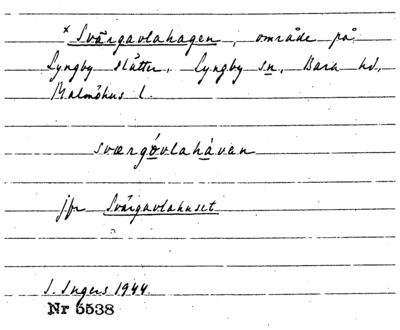 × Svärgavlahagen, område på
Lyngby slätter, Lyngby sn, Bara hd,
Malmöhus l.
sværgóvlahávan
jfr Svärgavlahuset
I. Ingers 1944.
Nr 5538